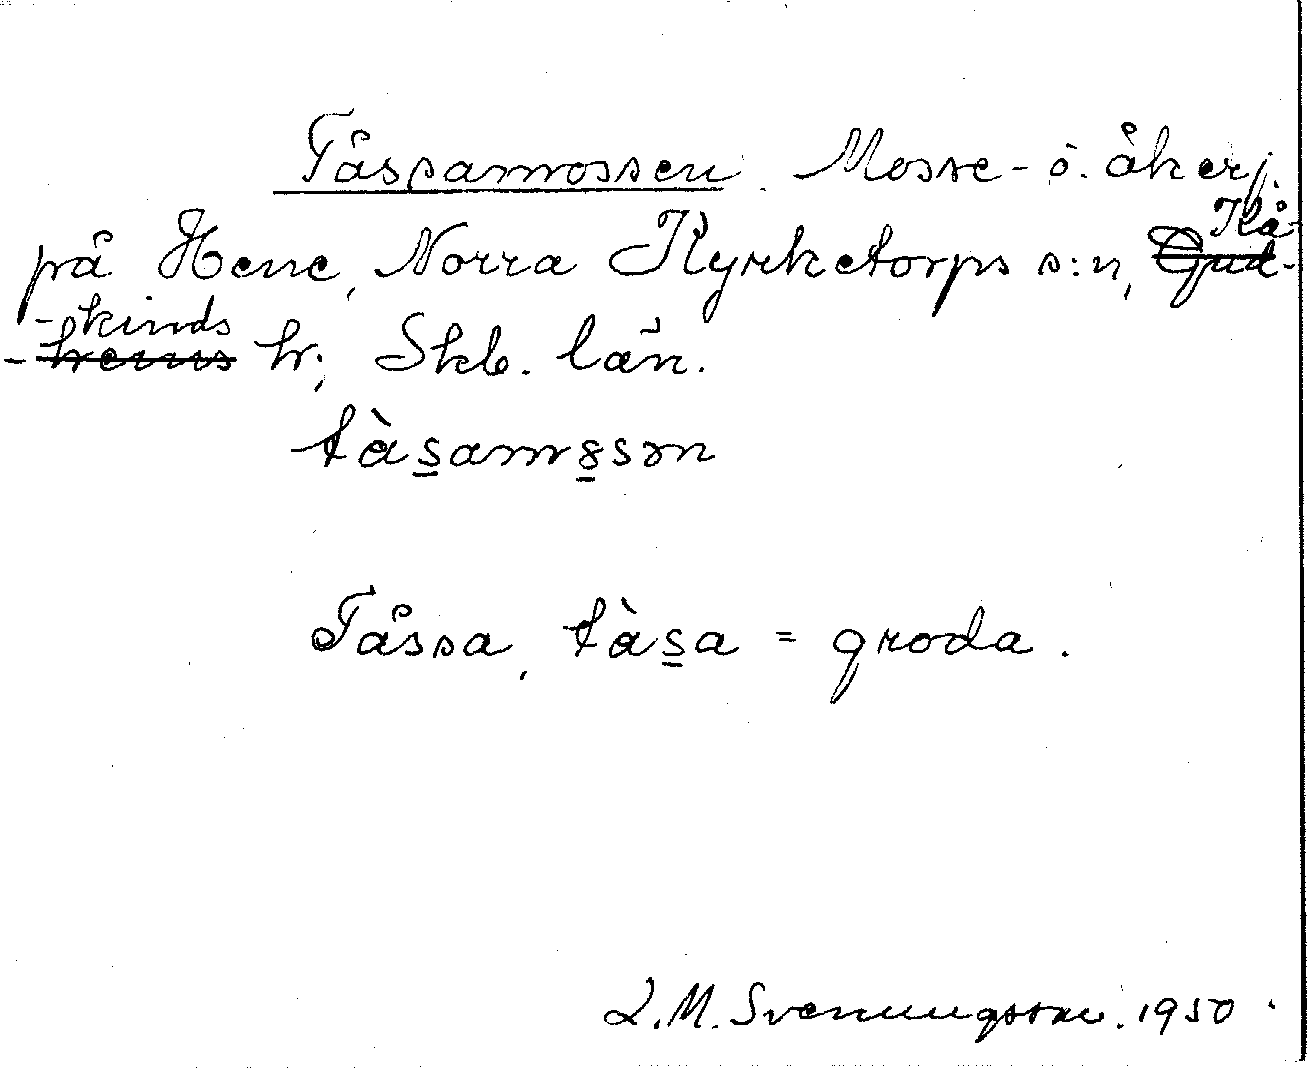 Tåssamossen. Mosse- o. åkerj.
på Hene, Norra Kyrketorps s:n, Kå-
-kinds h; Skb. län.
tàs̲amo̲sən
Tåssa, tàs̲a = groda.
L.M. Svenungsson. 1950.